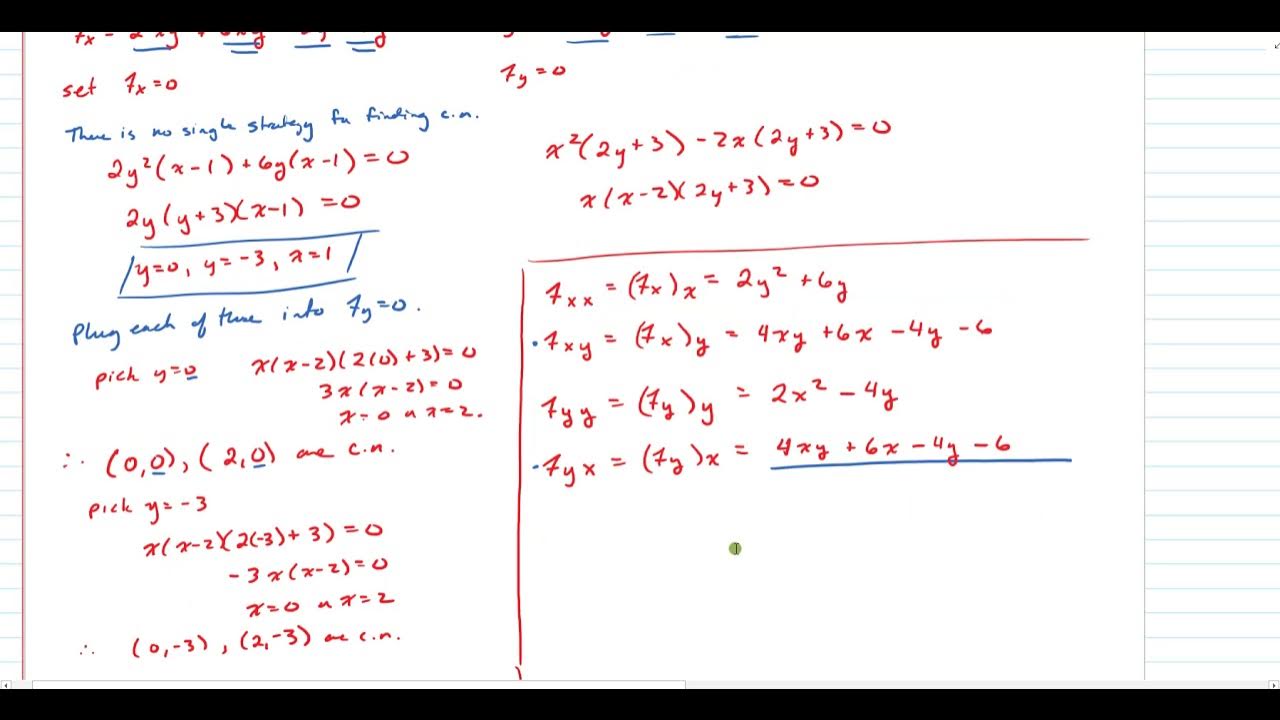 set fx=0
There is no single strategy for finding c.n.
2y²(x-1)+6y(x-1)=0
2y(y+3)(x-1)=0
y=0, y=-3, x=1
Plug each of these into fy=0.
pick y=0 x(x-2)(2(0)+3)=0
3x(x-2)=0
x=0 or x=2.
∴ (0,0), (2,0) are c.n.
pick y=-3
x(x-2)(2(-3)+3)=0
-3x(x-2)=0
x=0 or x=2
∴ (0,-3), (2,-3) are c.n.
fy=0
x²(2y+3)-2x(2y+3)=0
x(x-2)(2y+3)=0
fxx = (fx)x = 2y²+6y
·fxy = (fx)y = 4xy+6x-4y-6
fyy = (fy)y = 2x²-4y
·fyx = (fy)x = 4xy+6x-4y-6